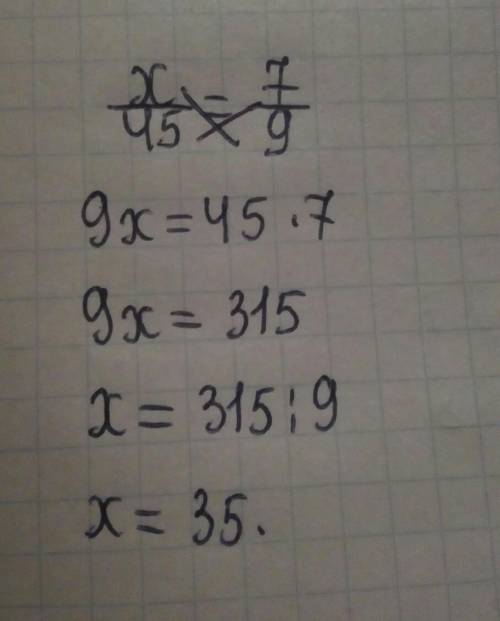 x/45 = 7/9
9x = 45 · 7
9x = 315
x = 315 : 9
x = 35.